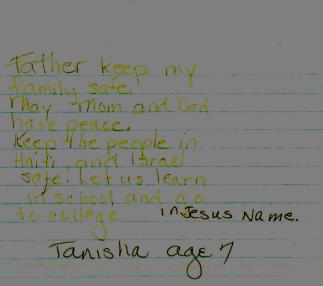 Father keep my
family safe.
May Mom and Dad
have peace.
Keep the people in
Haiti, and Israel
safe. Let us learn
in school and go
to college in Jesus Name.
Tanisha age 7